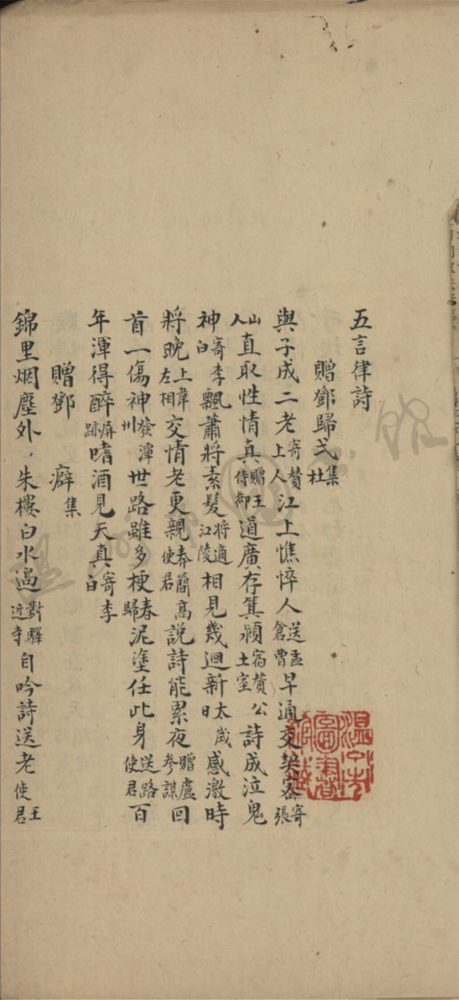 五言律詩
贈鄧歸弍集杜
與子成二老寄贊上人江上憔悴人送孟倉曹早通交契密寄張
山人直取性情真贈王侍御道廣存箕潁宿贊公土室詩成泣鬼
神寄李白飄蕭將素髮將適江陵相見幾迴新太歲日感激時
將晚上韋左相交情老更親奉簡高使君說詩能累夜贈盧參謀回
首一傷神發潭州世路雖多梗春歸泥塗任此身送路使君百
年渾得醉屏跡嗜酒見天真寄李白
贈鄧癖集
錦里烟塵外，朱樓白水過對驛近寺自吟詩送老王使君